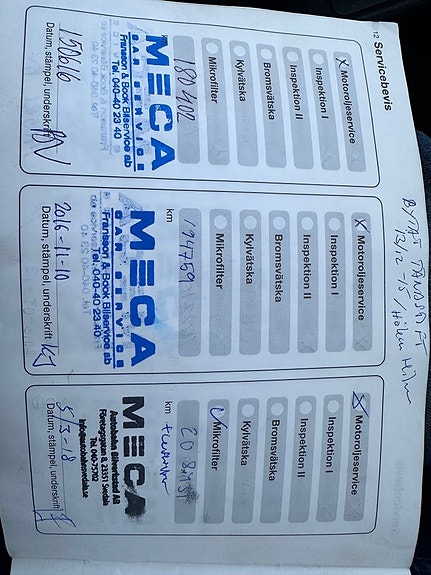 12 Servicebevis
X Motoroljeservice
Inspektion I
Inspektion II
Bromsvätska
Kylvätska
Mikrofilter
km 180402
MECA
CAR SERVICE
Fransson & Book Bilservice ab
Tel. 040-40 23 40
150616
Datum, stämpel, underskrift
X Motoroljeservice
Inspektion I
Inspektion II
Bromsvätska
Kylvätska
Mikrofilter
km 194759
MECA
CAR SERVICE
Fransson & Book Bilservice ab
Tel. 040-40 23 40
2016-11-10
Datum, stämpel, underskrift KJ
X Motoroljeservice
Inspektion I
Inspektion II
Bromsvätska
Kylvätska
Mikrofilter
km
MECA
Företagsgatan 8, 23351 Svedala
Tel. 040-75702
Datum, stämpel, underskrift
BYTAT TÄNDSTIFT
13/12-15 / Håkan